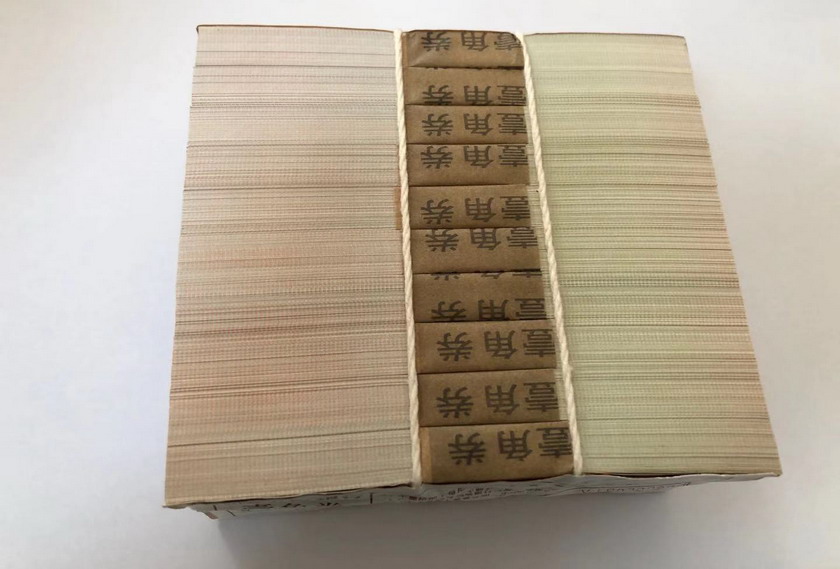 壹角券
壹角券
壹角券
壹角券
壹角券
壹角券
壹角券
壹角券
壹角券
壹角券